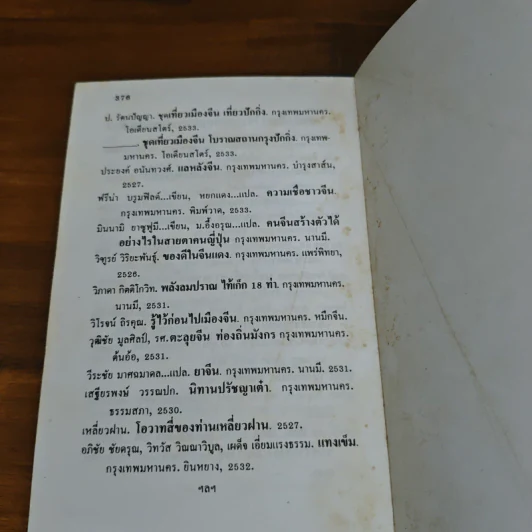 376
ป. รัตนปัญญา. ชุดเที่ยวเมืองจีน เที่ยวปักกิ่ง. กรุงเทพมหานคร.
โอเดียนสโตร์, 2533.
______. ชุดเที่ยวเมืองจีน โบราณสถานกรุงปักกิ่ง. กรุงเทพ-
มหานคร. โอเดียนสโตร์, 2533.
ประยงค์ อนันทวงศ์. แลหลังจีน. กรุงเทพมหานคร. บำรุงสาส์น,
2527.
ฟรีน่า บรูมฟิลด์...เขียน, หยกแดง...แปล. ความเชื่อชาวจีน.
กรุงเทพมหานคร. พิมพ์วาด, 2533.
มินนามิ ยาซูฟูมี...เขียน, ม.อึ้งอรุณ...แปล. คนจีนสร้างตัวได้
อย่างไรในสายตาคนญี่ปุ่น กรุงเทพมหานคร. นานมี.
วิฑูรย์ วิริยะพันธุ์. ของดีในจีนแดง. กรุงเทพมหานคร. แพร่พิทยา,
2526.
วิภาดา กิตติโกวิท. พลังลมปราณ ไท้เก็ก 18 ท่า. กรุงเทพมหานคร.
นานมี, 2531.
วิโรจน์ ถิรคุณ. รู้ไว้ก่อนไปเมืองจีน. กรุงเทพมหานคร. หมึกจีน.
วุฒิชัย มูลศิลป์, รศ.ตะลุยจีน ท่องถิ่นมังกร กรุงเทพมหานคร.
ต้นอ้อ, 2531.
วีระชัย มาศฉมาดล...แปล. ยาจีน. กรุงเทพมหานคร. นานมี. 2531.
เสฐียรพงษ์ วรรณปก. นิทานปรัชญาเต๋า. กรุงเทพมหานคร.
ธรรมสภา, 2530.
เหลี่ยวฝาน. โอวาทสี่ของท่านเหลี่ยวฝาน. 2527.
อภิชัย ชัยดรุณ, วิทวัส วิณณาวิบูล, เผด็จ เอี่ยมแรงธรรม. แทงเข็ม.
กรุงเทพมหานคร. ยินหยาง, 2532.
ฯลฯ